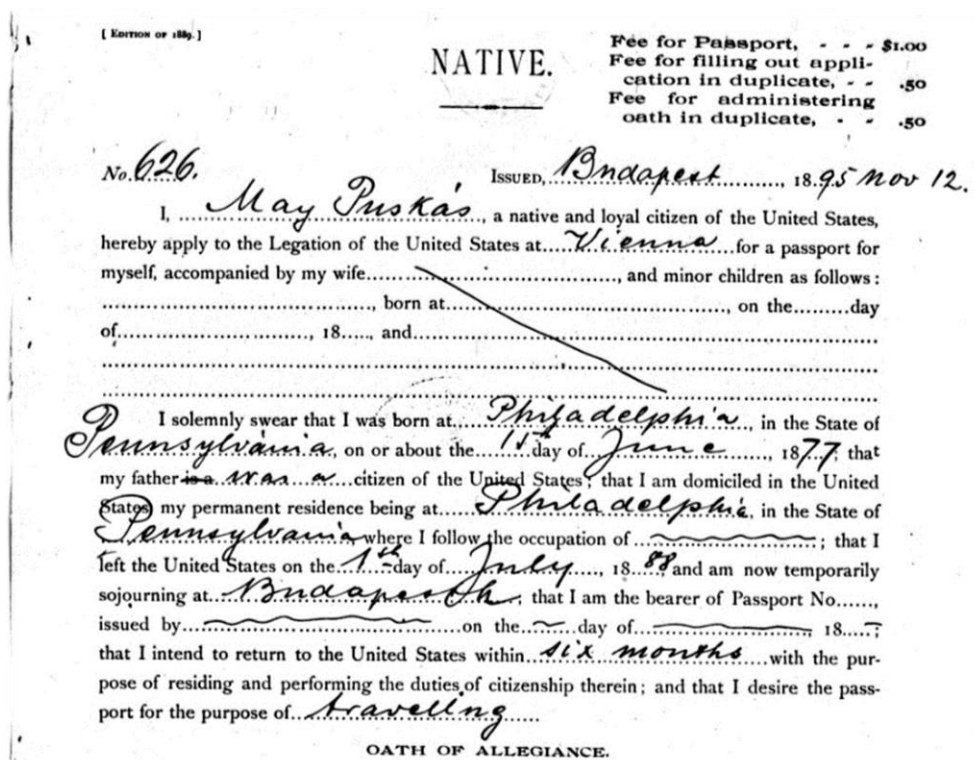 [ EDITION OF 1889. ]
NATIVE.
Fee for Passport, - - - $1.00
Fee for filling out appli-
cation in duplicate, - - .50
Fee for administering
oath in duplicate, - - .50
No. 626.
ISSUED, Budapest, 1895 Nov 12.
I, May Puskás, a native and loyal citizen of the United States,
hereby apply to the Legation of the United States at Vienna for a passport for
myself, accompanied by my wife, and minor children as follows:
, born at, on the day
of, 18, and
I solemnly swear that I was born at Philadelphia, in the State of
Pennsylvánia, on or about the 1st day of June, 1877; that
my father is a was a citizen of the United States; that I am domiciled in the United
States, my permanent residence being at Philadelphia, in the State of
Pennsylvania where I follow the occupation of ; that I
left the United States on the 1th day of July, 1888, and am now temporarily
sojourning at Budapesth; that I am the bearer of Passport No.,
issued by on the day of , 18 ;
that I intend to return to the United States within six months with the pur-
pose of residing and performing the duties of citizenship therein; and that I desire the pass-
port for the purpose of travelling
OATH OF ALLEGIANCE.